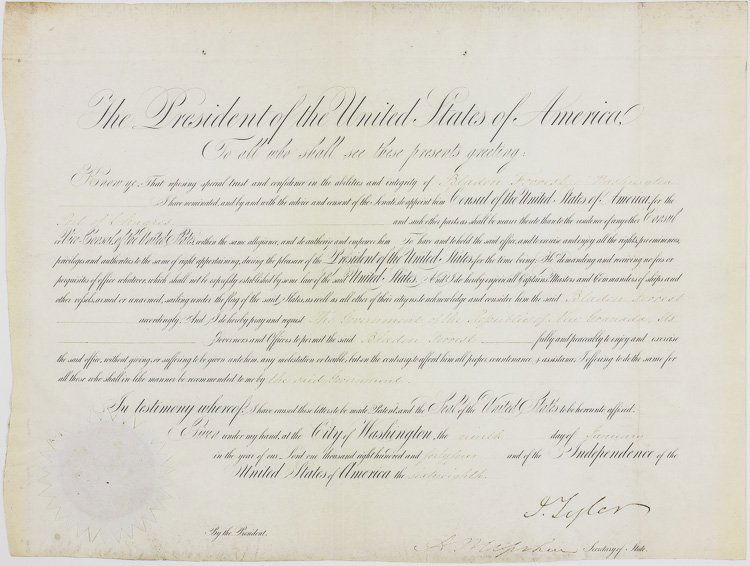 The President of the United States of America,
To all who shall see these presents greeting:
Know ye, That reposing special trust and confidence in the abilities and integrity of Bladen Forrest of Washington
I have nominated, and by and with the advice and consent of the Senate do appoint him Consul of the United States of America, for the
Port of Chagres and such other parts as shall be nearer thereto than to the residence of any other Consul
or Vice-Consul of the United States, within the same allegiance, and do authorize and empower him To have and to hold the said office, and to exercise and enjoy all the rights, preeminences,
privileges and authorities to the same of right appertaining, during the pleasure of the President of the United States, for the time being: He demanding and receiving no fees or
perquisites of office whatever, which shall not be expressly established by some law of the said United States. And I do hereby enjoin all Captains, Masters and Commanders of ships and
other vessels, armed or unarmed, sailing under the flag of the said States, as well as all other of their citizens to acknowledge and consider him the said Bladen Forrest
accordingly. And I do hereby pray and request The Government of the Republic of New Granada, its
Governors and Officers to permit the said Bladen Forrest fully and peaceably to enjoy and exercise
the said office, without giving, or suffering to be given unto him, any molestation or trouble, but on the contrary to afford him all proper countenance & assistance; I offering to do the same for
all those who shall in like manner be recommended to me by the said Government.
In testimony whereof, I have caused these letters to be made Patent, and the Seal of the United States to be hereunto affixed.
Given under my hand, at the City of Washington, the ninth day of January
in the year of our Lord one thousand eight hundred and and of the Independence of the
United States of America the sixty eighth.
J. Tyler
By the President.
A. P. Upshur Secretary of State.